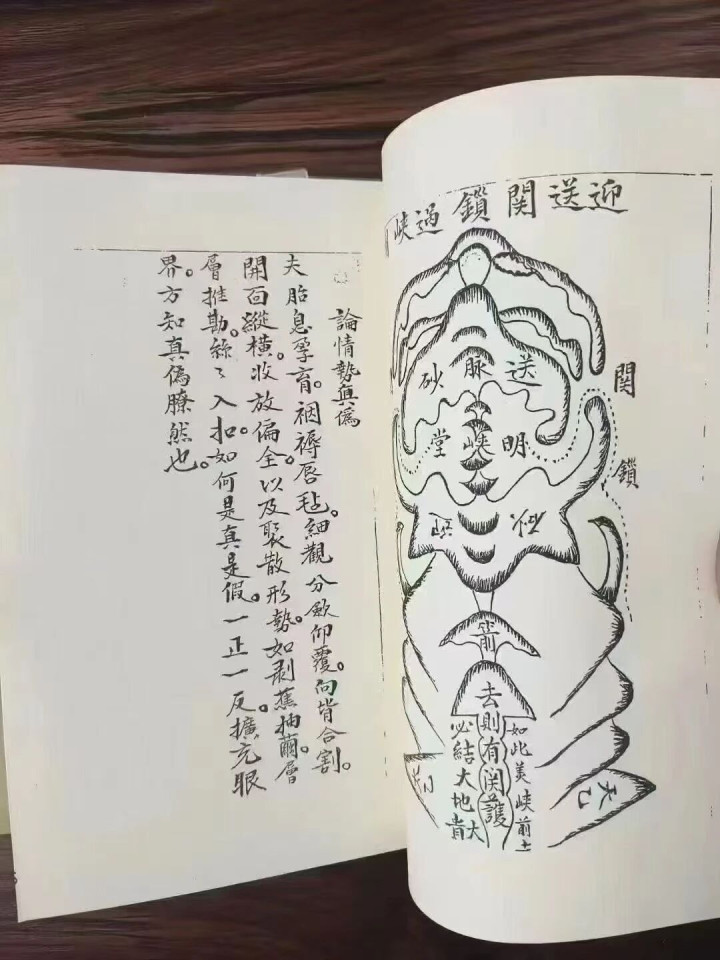 迎送関鎖過峽
送脉砂
明峽堂
関鎖
砂
砂
箭
如此美峽前
去則有関護
必結大地大貴
天乙
論情勢眞偽
夫胎息孕育。裀褥唇毡。細觀分歛仰覆。向背合割。
開面縱橫。收放偏全。以及聚散形勢。如剥蕉抽繭。層
層推勘。絲〻入扣。如何是真是假。一正一反。擴充眼
界。方知真偽瞭然也。